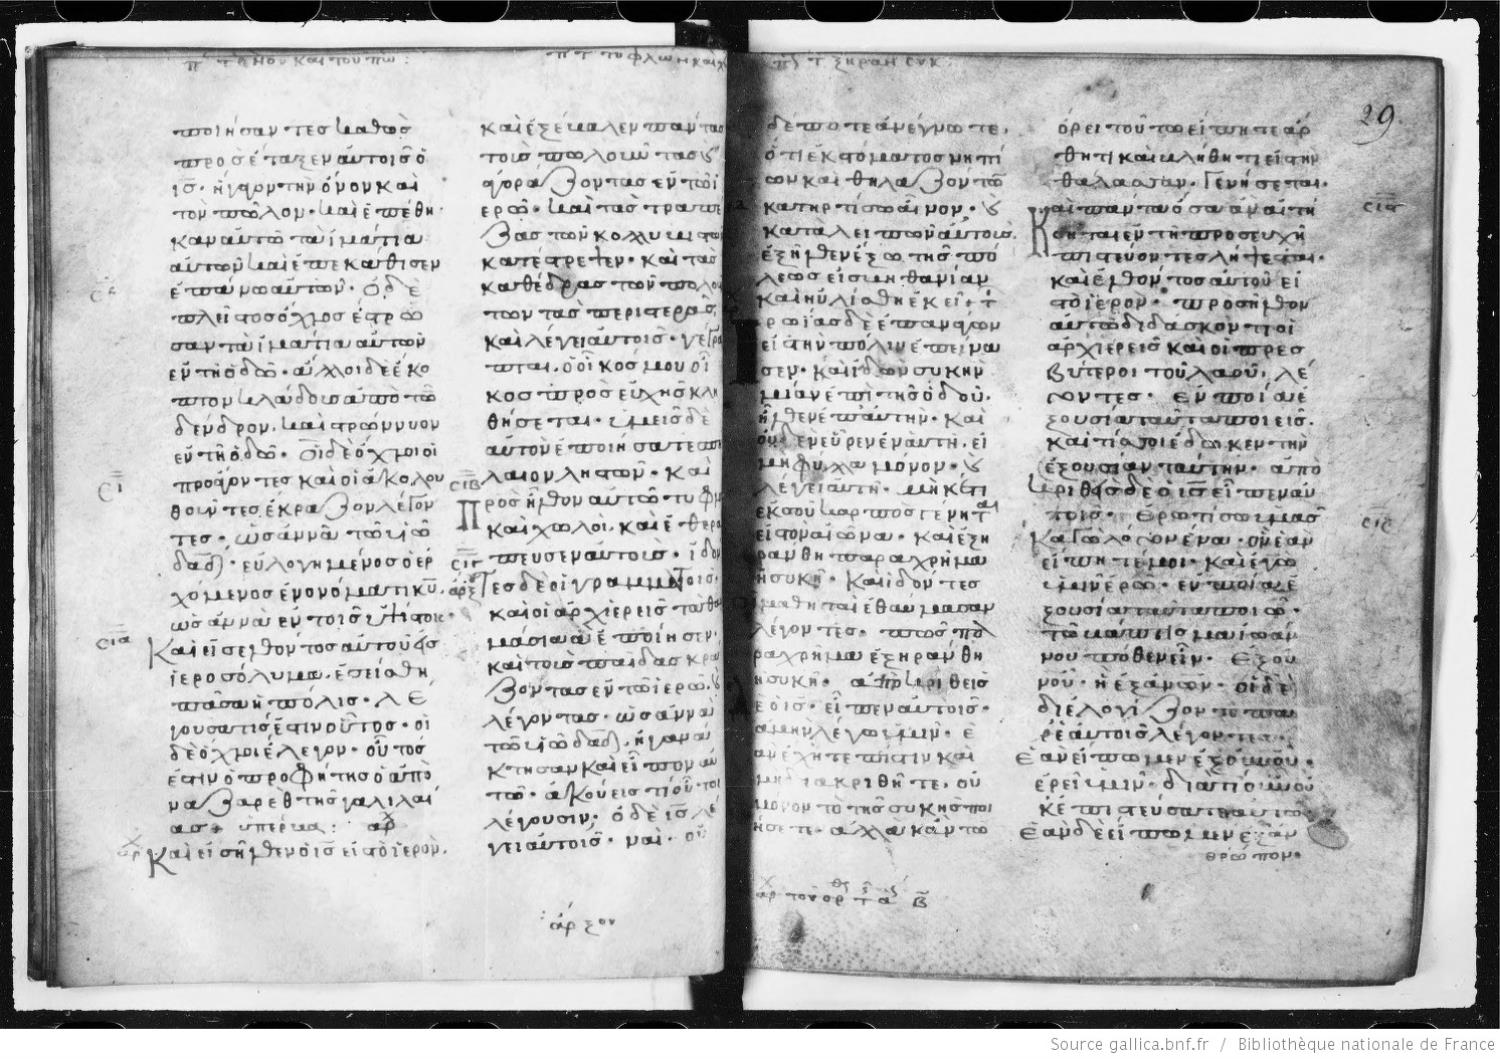 ποιήσαντες καθὼς
προσέταξεν αὐτοῖς ὁ
ις· ἤγαγον τὴν ὄνον καὶ
τὸν πῶλον· καὶ ἐπέθη
καν αὐτῶ τὰ ἱμάτια
αὐτῶν καὶ ἐπεκάθισεν
ἐπάνω αὐτῶν· ὁ δὲ
πλεῖστος ὄχλος ἔστρω
σαν τὰ ἱμάτια αὐτῶν
ἐν τῆ ὁδῶ· ἄλλοι δὲ ἔκο
πτον κλάδους ἀπὸ τῶ
δένδρων· καὶ ἐστρώννυον
ἐν τῆ ὁδῶ· Οἱ δὲ ὄχλοι οἱ
προάγοντες καὶ οἱ ἀκολου
θοῦντες, ἔκραζον λέγον
τες· ὡσαννὰ τῶ υἱῶ
δαδ· εὐλογημένος ὁ ἐρ
χόμενος ἐν ὀνόματι κυ·
ὡσαννὰ ἐν τοῖς ὑψίστοις·
Καὶ εἰσελθόντος αὐτοῦ εἰς
ἱεροσόλυμα, ἐσείσθη
πᾶσα ἡ πόλις· λέ
γουσα τίς ἐστιν οὗτος· οἱ
δὲ ὄχλοι ἔλεγον· οὗτός
ἐστιν ὁ προφήτης ὁ ἀπὸ
ναζαρὲθ τῆς γαλιλαί
ας
Καὶ εἰσῆλθεν ὁ ις εἰς τὸ ἱερόν·
καὶ ἐξέβαλεν πάντας
τοὺς πωλοῦντας καὶ
ἀγοράζοντας ἐν τῶ ἱ
ερῶ· καὶ τὰς τραπέ
ζας τῶν κολλυβιστῶν
κατέστρεψεν· καὶ τὰς
καθέδρας τῶν πωλούν
των τὰς περιστεράς·
καὶ λέγει αὐτοῖς· γέγρα
πται, ὁ οἶκός μου οἶ
κος προσευχῆς κλη
θήσεται· ὑμεῖς δὲ
αὐτὸν ἐποιήσατε σπή
λαιον ληστῶν· Καὶ
Προσῆλθον αὐτῶ τυφλοὶ
καὶ χωλοί, καὶ ἐθερά
πευσεν αὐτούς· ἰδόν
τες δὲ οἱ γραμματεῖς
καὶ οἱ ἀρχιερεῖς τὰ θαυ
μάσια ἃ ἐποίησεν·
καὶ τοὺς παῖδας κρά
ζοντας ἐν τῶ ἱερῶ, καὶ
λέγοντας· ὡσαννὰ
τῶ υἱῶ δαδ, ἠγανά
κτησαν καὶ εἶπον αὐ
τῶ· ἀκούεις τί οὗτοι
λέγουσιν· ὁ δὲ ις λέ
γει αὐτοῖς· ναί· οὐ
29
δέποτε ἀνέγνωτε,
ὅτι ἐκ στόματος νηπί
ων καὶ θηλαζόντων
κατηρτίσω αἶνον· καὶ
καταλειπὼν αὐτοὺς
ἐξῆλθεν ἔξω τῆς πό
λεως εἰς βηθανίαν
καὶ ηὐλίσθη ἐκεῖ·
πρωίας δὲ ἐπανάγων
εἰς τὴν πόλιν ἐπείνα
σεν· καὶ ἰδὼν συκῆν
μίαν ἐπὶ τῆς ὁδοῦ,
ἦλθεν ἐπ' αὐτήν· καὶ
οὐδὲν εὗρεν ἐν αὐτῆ, εἰ
μὴ φύλλα μόνον· καὶ
λέγει αὐτῆ· μηκέτι
ἐκ σοῦ καρπὸς γένηται
εἰς τὸν αἰῶνα· καὶ ἐξη
ράνθη παραχρῆμα
ἡ συκῆ· Καὶ ἰδόντες
οἱ μαθηταὶ ἐθαύμασαν
λέγοντες· πῶς πα
ραχρῆμα ἐξηράνθη
ἡ συκῆ· ἀποκριθεὶς
δὲ ὁ ις· εἶπεν αὐτοῖς·
ἀμὴν λέγω ὑμῖν· ἐ
ὰν ἔχητε πίστιν καὶ
μὴ διακριθῆτε, οὐ
μόνον τὸ τῆς συκῆς ποι
ήσετε· ἀλλὰ κἂν τῶ
ὄρει τούτω εἴπητε ἄρ
θητι καὶ βλήθητι εἰς τὴν
θάλασσαν· Γενήσεται·
Καὶ πάντα ὅσα ἂν αἰτή
σηται ἐν τῆ προσευχῆ
πιστεύοντες λήψεσθαι·
καὶ ἐλθόντος αὐτοῦ εἰς
τὸ ἱερόν· προσῆλθον
αὐτῶ διδάσκοντι οἱ
ἀρχιερεῖς καὶ οἱ πρες
βύτεροι τοῦ λαοῦ, λέ
γοντες· Ἐν ποία ἐ
ξουσία ταῦτα ποιεῖς·
καὶ τίς σοι ἔδωκεν τὴν
ἐξουσίαν ταύτην· ἀπο
κριθεὶς δὲ ὁ ις εἶπεν αὐ
τοῖς· Ἐρωτήσω ὑμᾶς
κἀγὼ λόγον ἕνα· ὃν ἐὰν
εἴπητέ μοι· κἀγὼ
ὑμῖν ἐρῶ· ἐν ποία ἐ
ξουσία ταῦτα ποιῶ·
τὸ βάπτισμα ἰωάν
νου πόθεν ἦν· Ἐξ οὐ
νοῦ· ἢ ἐξ ἀνων· οἱ δὲ
διελογίζοντο πα
ρ' ἑαυτοῖς λέγοντες·
Ἐὰν εἴπωμεν ἐξ οὐνοῦ·
ἐρεῖ ὑμῖν· διατί οὖν οὐ
κ ἐπιστεύσατε αὐτῶ
Ἐὰν δὲ εἴπωμεν ἐξ ἀν
θρώπων·
Source gallica.bnf.fr / Bibliothèque nationale de France